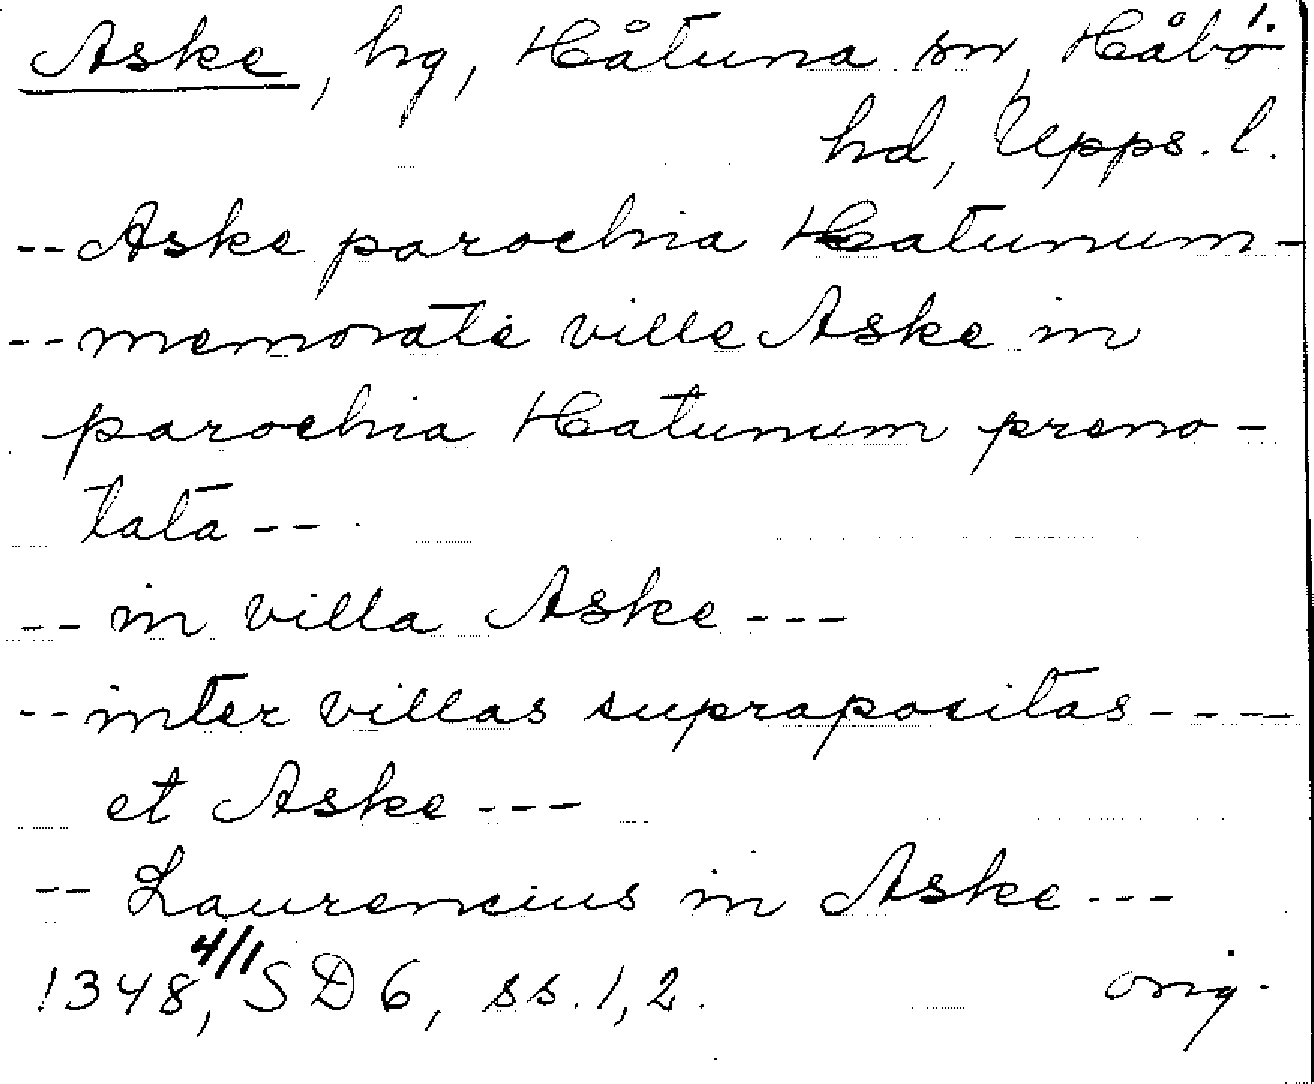 Aske, hg, Håtuna sn, Håbo 1.
hd, Upps. l.
-- Aske parochia Hatunum -
-- memorate ville Aske in
parochia Hatunum preno-
tata --
-- in villa Aske ---
-- inter villas suprapositas ----
et Aske ---
-- Laurencius in Aske ---
1348, 4/1 SD 6, ss. 1, 2. orig.